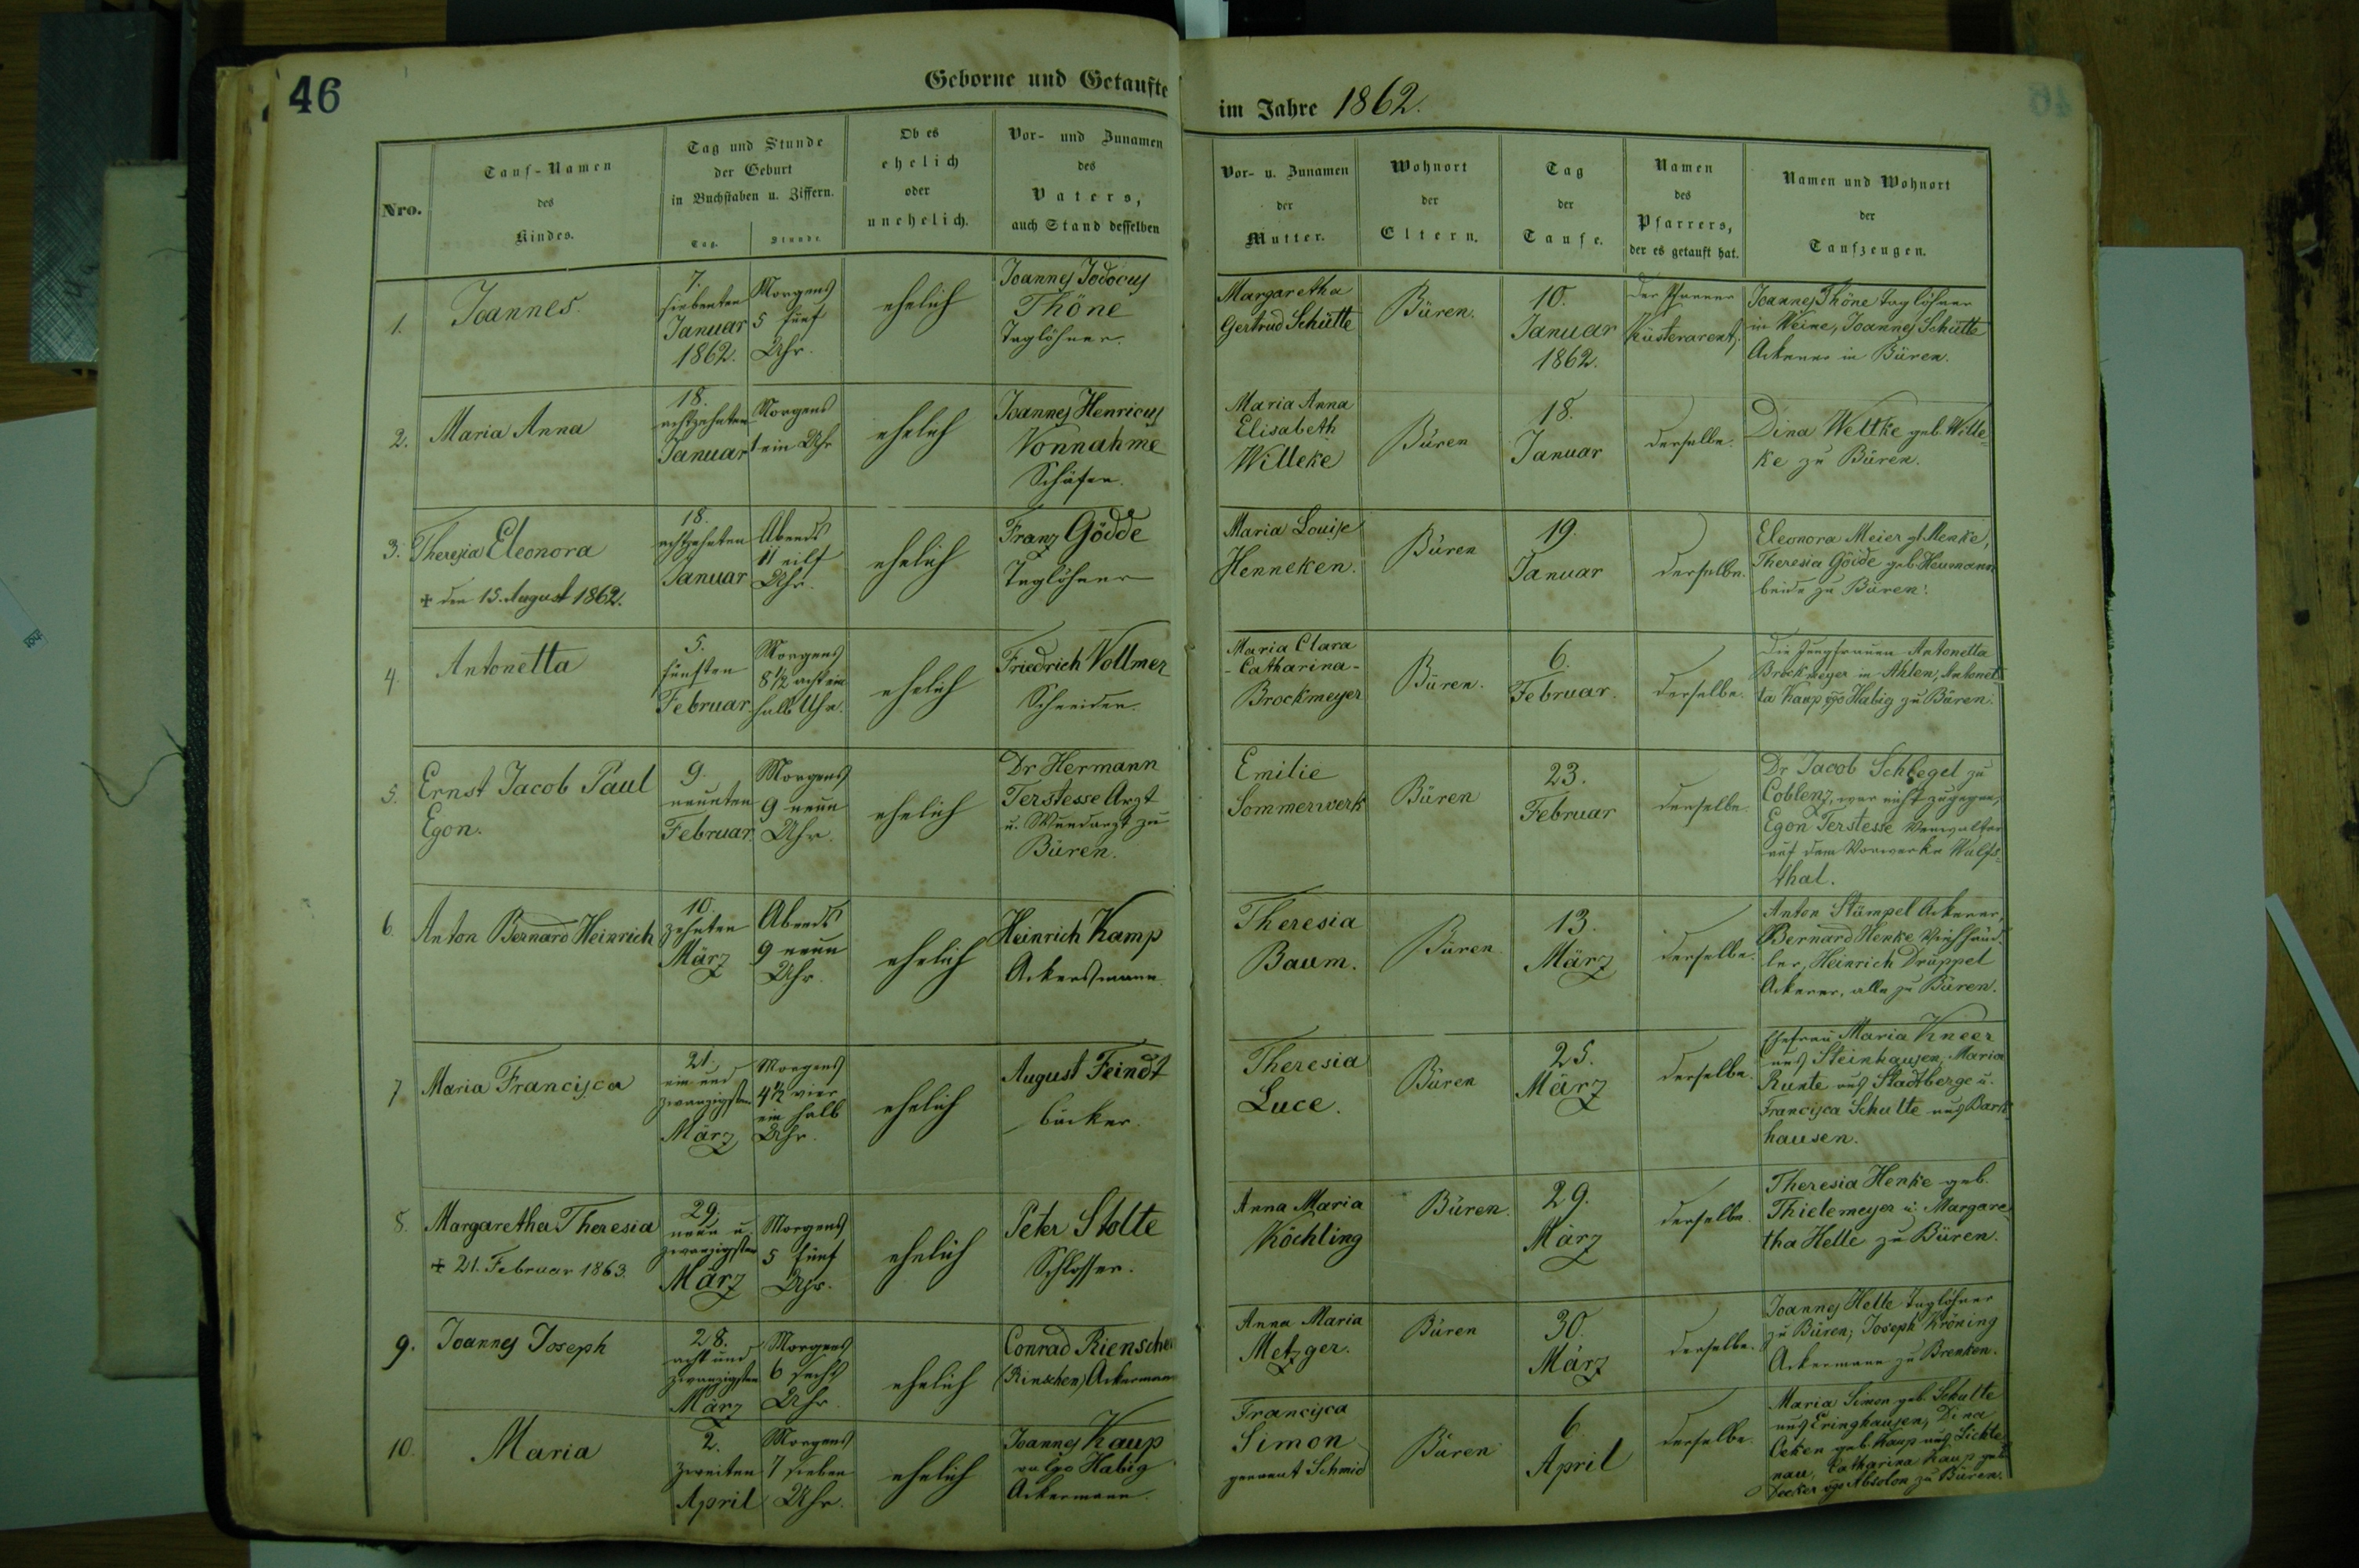 46
Geborne und Getaufte
im Jahre 1862.
Nro.
Tauf-Namen
des
Kindes.
Tag und Stunde
der Geburt
in Buchstaben u. Ziffern.
Tag.
Stunde.
Ob es
ehelich
oder
unehelich.
Vor- und Zunamen
des
Vaters,
auch Stand desselben
Vor- u. Zunamen
der
Mutter.
Wohnort
der
Eltern.
Tag
der
Taufe.
Namen
des
Pfarrers,
der es getauft hat.
Namen und Wohnort
der
Taufzeugen.
1.
Joannes.
7.
siebenten
Januar
1862.
Morgens
5 fünf
Uhr.
ehelich
Joannes Jodocus
Thöne
Taglöhner.
Margaretha
Gertrud Schütte
Büren.
10.
Januar
1862.
Der Pfarrer
Küsterarent.
Joannes Thöne Taglöhner
in Weine, Joannes Schütte
Ackerer in Büren.
2.
Maria Anna
18.
achtzehnten
Januar
Morgens
1 ein Uhr
ehelich
Joannes Henricus
Vonnahme
Schäfer.
Maria Anna
Elisabeth
Willeke
Büren
18.
Januar
derselbe.
Dina Weltke geb. Wille-
ke zu Büren.
3.
Theresia Eleonora
+ den 15. August 1862.
18.
achtzehnten
Januar
Abends
11 eilf
Uhr.
ehelich
Franz Gödde
Taglöhner
Maria Louise
Henneken.
Büren
19.
Januar
derselbe.
Eleonora Meier gt. Menke,
Theresia Gödde geb. Heumann
beide zu Büren.
4.
Antonetta
5.
fünften
Februar.
Morgens
8 1/2 acht ein
halb Uhr.
ehelich
Friedrich Vollmer
Schneider.
Maria Clara
-Catharina-
Brockmeyer
Büren.
6.
Februar.
derselbe.
Die Jungfrauen Antonetta
Brockmeyer in Ahlen, Antonet-
ta Kaup vgo Habig zu Büren.
5.
Ernst Jacob Paul
Egon.
9.
neunten
Februar
Morgens
9 neun
Uhr.
ehelich
Dr Hermann
Terstesse Arzt
u. Wundarzt zu
Büren.
Emilie
Sommerwerk
Büren
23.
Februar
derselbe
Dr Jacob Schlegel zu
Coblenz, war nicht zugegen,
Egon Terstesse Verwalter
auf dem Vorwerke Wulfs-
thal.
6.
Anton Bernard Heinrich
10.
zehnten
März
Abends
9 neun
Uhr.
ehelich
Heinrich Kamp
Ackersmann.
Theresia
Baum.
Büren
13.
März
derselbe.
Anton Stümpel Ackerer,
Bernard Henke Viehhänd-
ler, Heinrich Drüppel
Ackerer, alle zu Büren.
7
Maria Francisca
21.
ein und
zwanzigsten
März
Morgens
4 1/2 vier
ein halb
Uhr.
ehelich
August Feindt
bäcker.
Theresia
Luce.
Büren
25.
März
derselbe.
Ehefrau Maria Kneer
aus Steinhausen, Maria
Runte aus Stadtberge u.
Francisca Schulte aus Bark-
hausen.
8.
Margaretha Theresia
+ 21. Februar 1863.
29.
neun u.
zwanzigsten
März
Morgens
5 fünf
Uhr.
ehelich
Peter Stolte
Schlosser.
Anna Maria
Köchling
Büren.
29.
März
derselbe.
Theresia Henke geb.
Thielemeyer u. Margare-
tha Helle zu Büren.
9.
Joannes Joseph
28.
acht und
zwanzigsten
März
Morgens
6 sechs
Uhr.
ehelich
Conrad Rienschen
(Rinschen) Ackermann
Anna Maria
Metzger.
Büren
30.
März
derselbe.
Joannes Helle Taglöhner
zu Büren, Joseph Kröning
Ackermann zu Brenken.
10.
Maria
2.
zweiten
April
Morgens
7 sieben
Uhr.
ehelich
Joannes Kaup
vulgo Habig
Ackermann.
Francisca
Simon
genannt Schmid
Büren
6
April
derselbe.
Maria Simon geb. Schulte
aus Eringhausen, Dina
Ocken geb. Kaup aus Lichte-
nau, Catharina Kaup geb.
Becker vgo Absolon zu Büren.